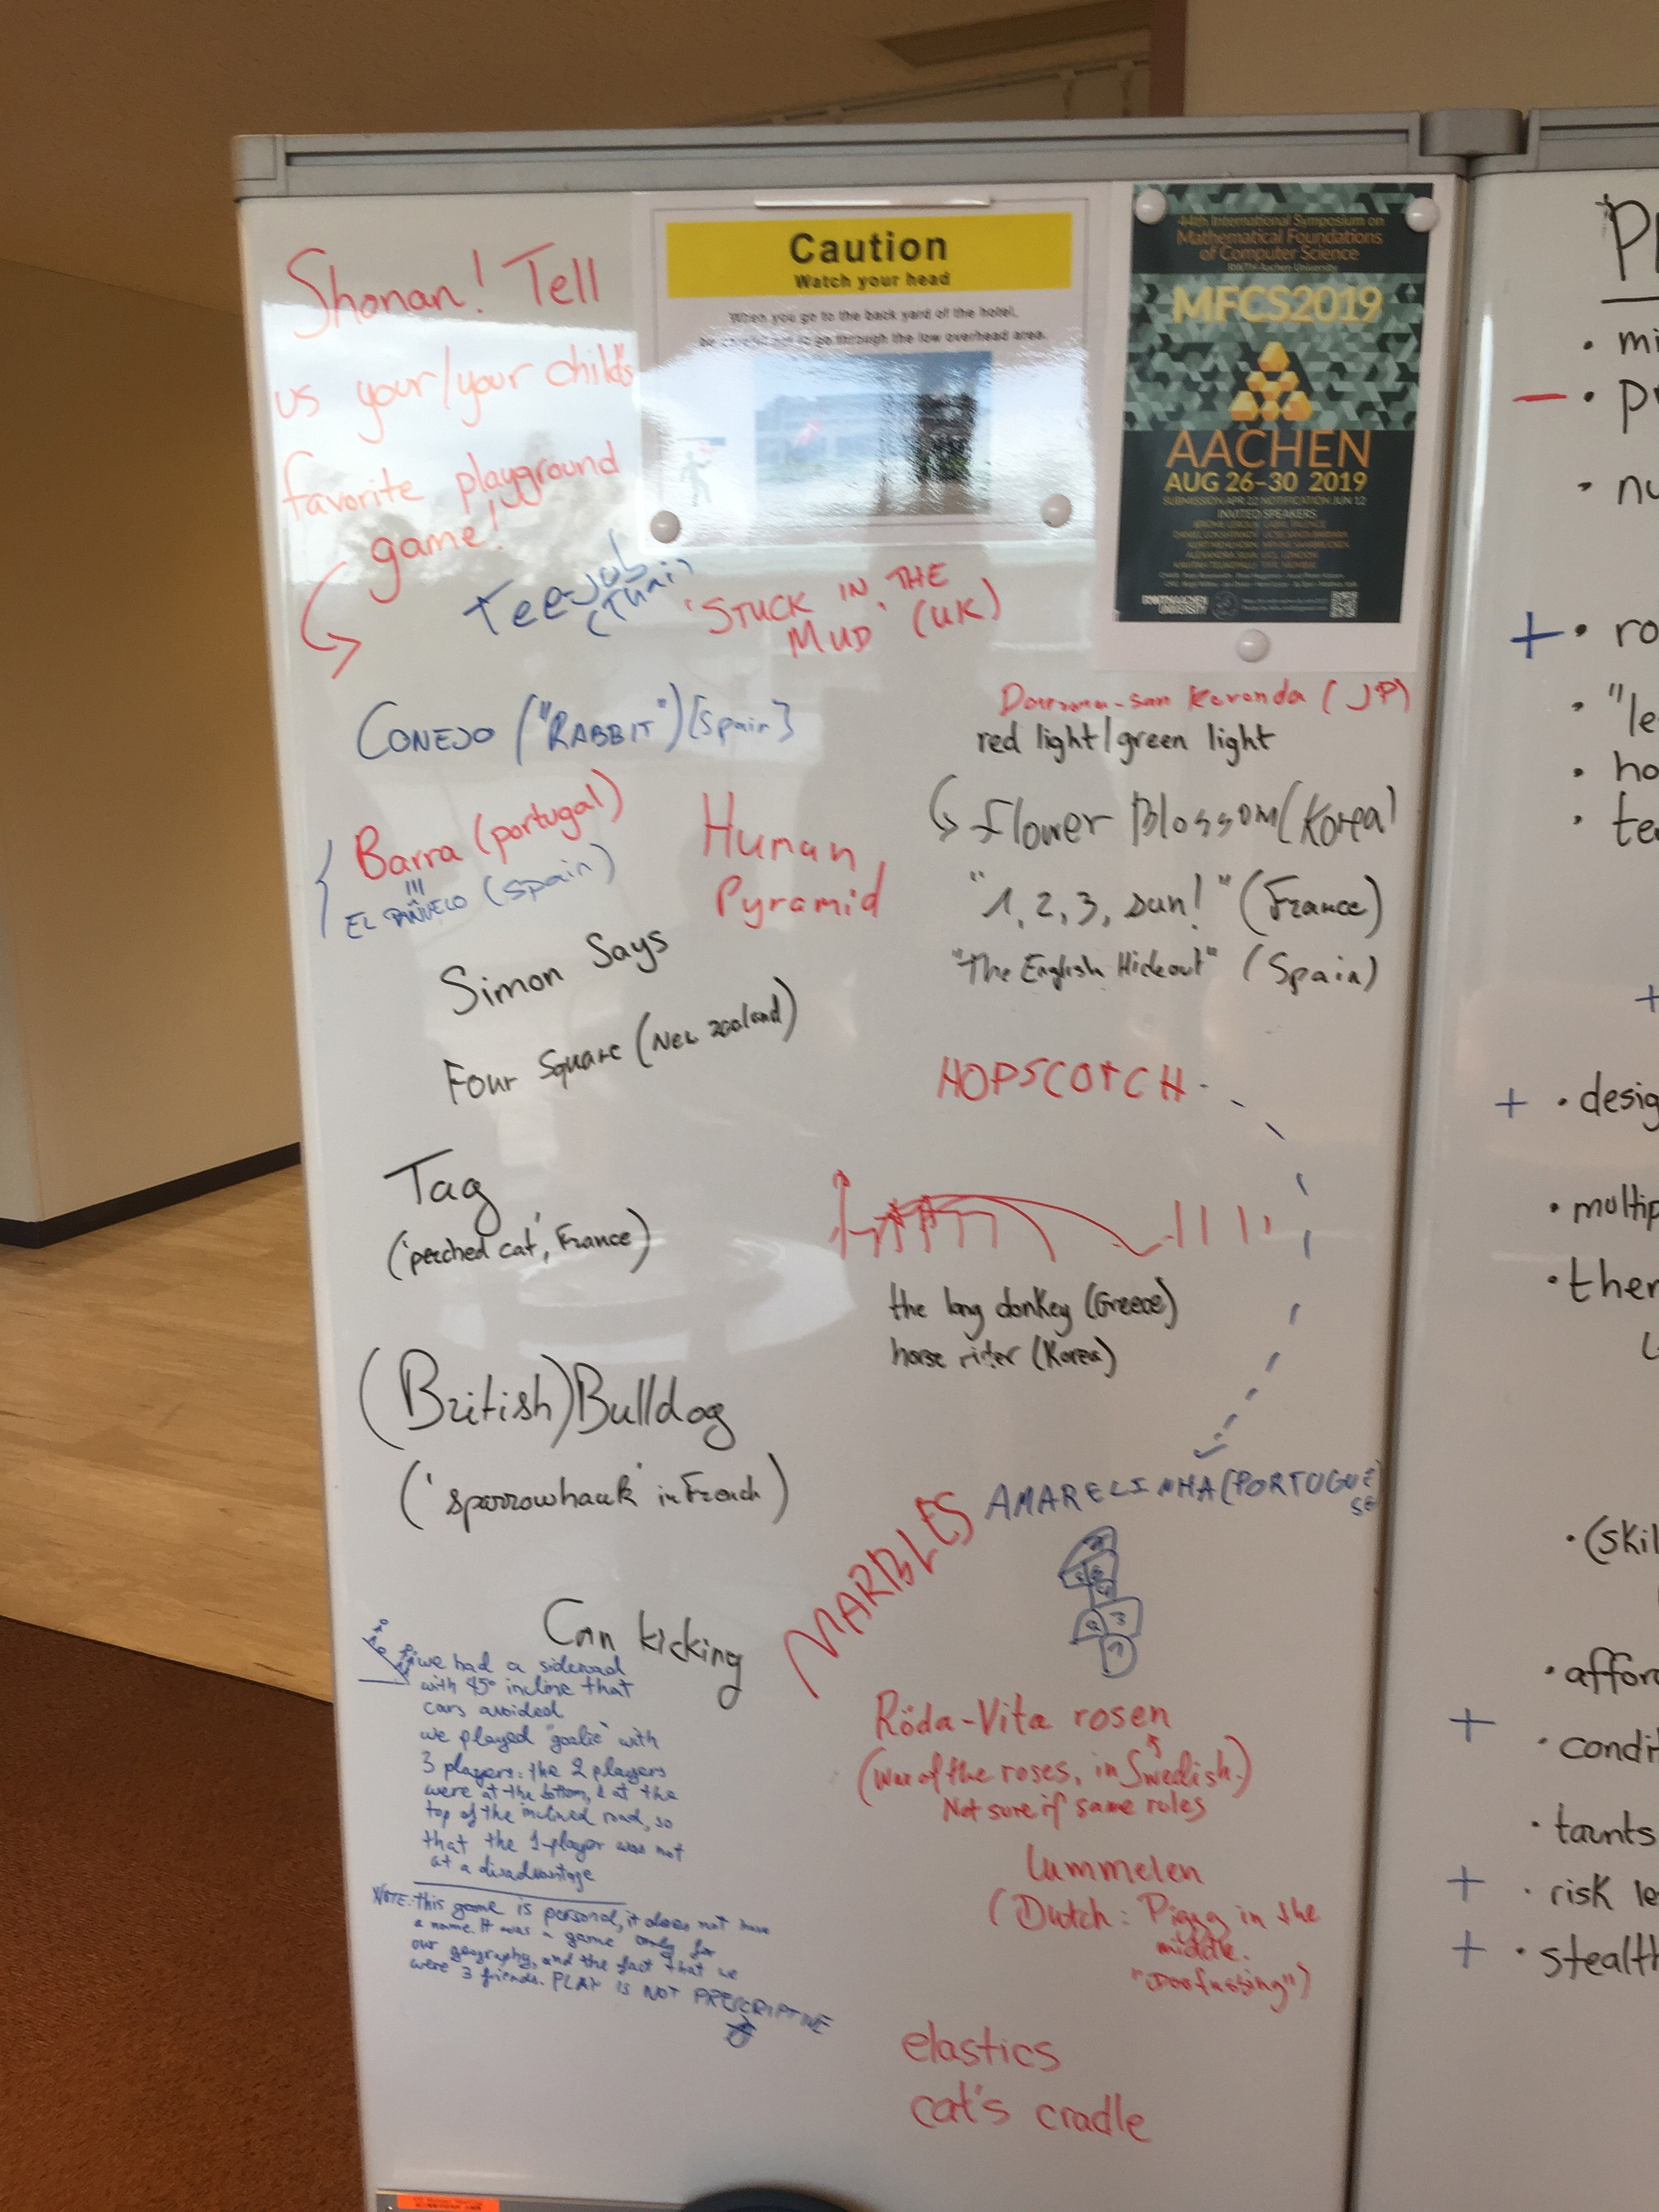 Shonan! Tell
us your/your child's
favorite playground
game!
Caution
Watch your head
When you go to the back yard of the hotel,
be careful not to go through the low overhead area.
44th International Symposium on
Mathematical Foundations
of Computer Science
RWTH Aachen University
MFCS2019
AACHEN
AUG 26-30 2019
SUBMISSION APR 22 NOTIFICATION JUN 12
INVITED SPEAKERS
RWTH AACHEN
UNIVERSITY
Tee-Job
(Thai)
'STUCK IN THE
MUD' (UK)
CONEJO ("RABBIT") [Spain]
Daruma-san Koronda (JP)
red light/green light
Flower Blossom (Korea)
"1, 2, 3, sun!" (France)
"The English Hideout" (Spain)
Barra (portugal)
EL PAÑUELO (Spain)
Human
Pyramid
Simon Says
Four Square (New Zealand)
HOPSCOTCH
Tag
('perched cat', France)
the long donkey (Greece)
horse rider (Korea)
(British) Bulldog
('sparrowhawk' in French)
AMARELINHA (PORTUGUE
SE)
MARBLES
1
2
3
Can kicking
we had a sideroad
with 45° incline that
cars avoided
we played "goalie" with
3 players: the 2 players
were at the bottom, 1 at the
top of the inclined road, so
that the 1-player was not
at a disadvantage
NOTE: this game is personal, it does not have
a name. It was a game only for
our geography, and the fact that we
were 3 friends. PLAY IS NOT PRESCRIPTIVE
Röda-Vita rosen
(War of the roses, in Swedish.)
Not sure if same rules
Lummelen
(Dutch: Piggy in the
middle.
elastics
cat's cradle
mi
nu
ro
"le
ho
te
desig
multip
ther
(skil
affor
condit
taunts
risk le
stealth